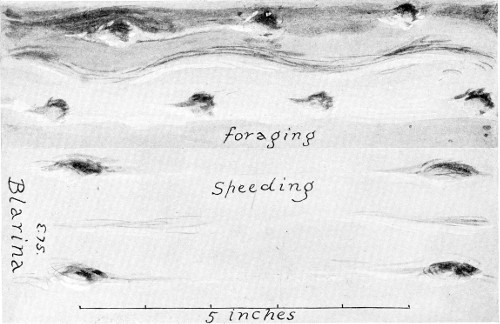 foraging
Speeding
Blarina
E.T.S.
5 inches